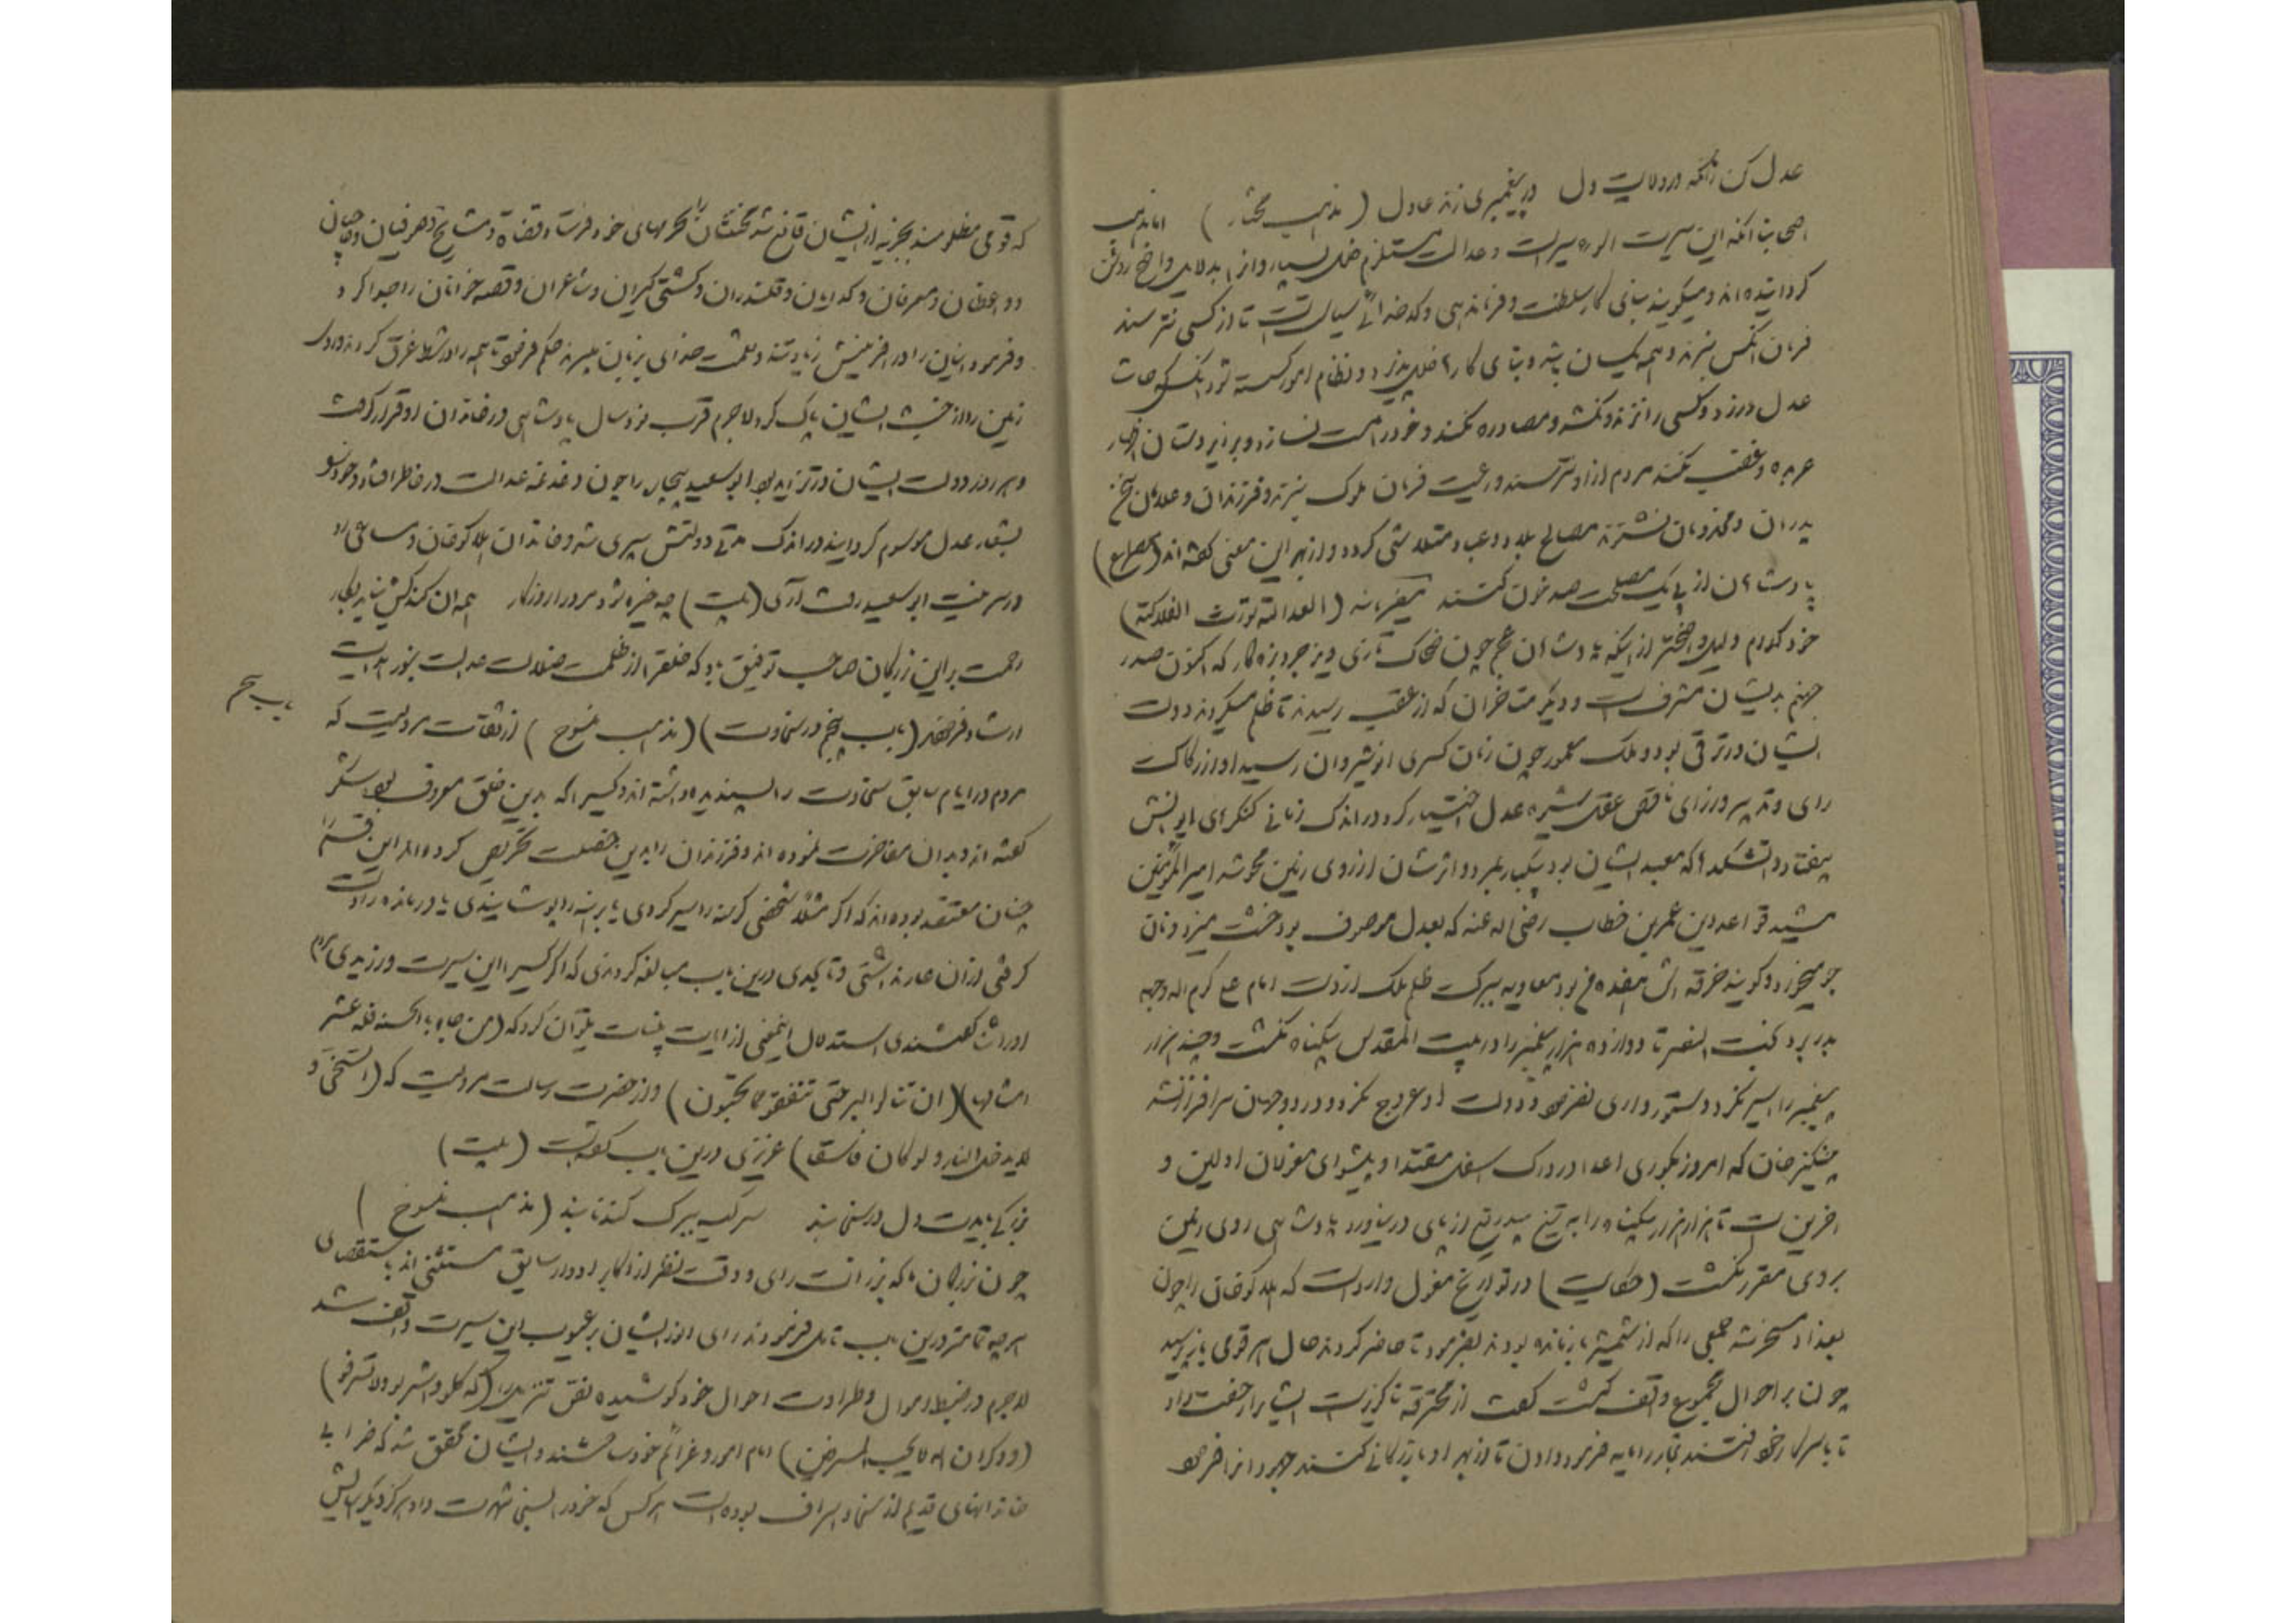 عدل کن زانکه در ولایت دل در پیغمبری زند عادل (مذهب مختار) اما مذهب
اصحابنا آنکه این سیرت اسوء سیرست و عدالت مستلزم خلل بسیار و آنرا بدلایل واضح روشن
گردانیده‌اند و میگویند بنای کار سلطنت و فرماندهی و کدخدائی سیاست است تا از کسی نترسند
فرمان آنکس نبرند و همه یکسان باشند و بنای کارها خلل پذیرد و نظام امور گسسته شود آنکس که حاشا
عدل ورزد و کسی را نزند و نکشد و مصادره نکند و خود را مست نسازد و بر زیردستان اظهار
عربده و غضب نکند مردم ازو نترسند و رعیت فرمان ملوک نبرند و فرزندان و غلامان سخن
پدران و مخدومان نشنوند مصالح بلاد و عباد متلاشی گردد و از بهر این معنی گفته‌اند (مصراع)
پادشاهان از پی یک مصلحت صد خون کنند میفرمایند (العدالة تورث الفلاکة)
خود کدام دلیل واضحتر ازینکه پادشاهان عجم چون ضحاک تازی و یزدجرد بزه‌کار که اکنون صدر
جهنم بدیشان مشرفست و دیگر متاخران که از عقب رسیدند تا ظلم میکردند دولت
ایشان در ترقی بود و ملک معمور چون زمان کسری انوشیروان رسید او از رکاکت
رای و تدبیر وزرای ناقص عقل شیوه عدل اختیار کرد در اندک زمانی کنگرهای ایوانش
بیفتاد و آتشکدها که معبد ایشان بود بیکبار بمرد و اثرشان از روی زمین محو شد امیرالمؤمنین
مشید قواعد دین عمر بن خطاب رضی اله عنه که بعدل موصوف بود خشت میزد و نان
جو میخورد و گویند خرقه‌اش هفده من بود معاویه ببرکت ظلم ملک از دست امام علی کرم اله وجهه
بدر برد بخت النصر تا دوازده هزار پیغمبر را در بیت المقدس بیگناه نکشت و چند هزار
پیغمبر را اسیر نکرد و دستورداری نفرمود دولت او عروج نکرد و در دو جهان سرافراز نشد
چنگیزخان که امروز بکوری اعدا در درک اسفل مقتدا و پیشوای مغولان اولین و
آخرین است تا هزاران هزار بیگناه را به تیغ بیدریغ از پای در نیاورد پادشاهی روی زمین
بروی مقرر نگشت (حکایت) در تواریخ مغول وارداست که هلاکو خان را چون
بغداد مسخر شد جمعی را که از شمشیر بازمانده بودند بفرمود تا حاضر کردند حال هر قومی باز پرسید
چون بر احوال مجموع واقف گشت گفت از محترفه ناگزیرست ایشانرا رخصت داد
تا بر سر کار خود رفتند تجار را مایه فرمود دادن تا از بهر او بازرگانی کنند جهودانرا فرمود
که قومی مظلومند بجزیه ازیشان قانع شد مخنثان را بحرمهای خود فرستاد قضاة و مشایخ و صوفیان و حاجیان
و واعظان و معرفان و گدایان و قلندران و کشتی گیران و شاعران و قصه خوانان را جدا کرد
و فرمود اینان در آفرینش زیادتند و نعمت خدای بزیان میبرند حکم فرمود تا همه را در شط غرق کردند و روی
زمین را از خبث ایشان پاک کرد لاجرم قرب نود سال پادشاهی در خاندان او قرار گرفت
و هر روز دولت ایشان در تزاید بود ابو سعید بیچاره را چون دغدغه عدالت در خاطر افتاد و خود را
بشعار عدل موسوم گردانید در اندک مدتی دولتش سپری شد و خاندان هلاکوخان و مساعی او
در سر نیت ابو سعید رفت آری (بیت) چو خیره شود مرد را روزگار همه آن کند کش نیاید بکار
رحمت بر این بزرگان صاحب توفیق باد که خلق را از ظلمت ضلالت عدالت بنور هدایت
ارشاد فرمودند (باب پنجم در سخاوت) (مذهب منسوخ) از ثقات مرویست که
باب پنجم
مردم در ایام سابق سخاوت را پسندیده داشته‌اند و کسیرا که بدین خلق معروف بود شکر
گفته‌اند و بدان مفاخرت نموده‌اند و فرزندان را بدین خصلت تحریص کرده‌اند این قسم را
چنان معتقد بوده‌اند که اگر مثلا شخصی گرسنه را سیر کردی یا برهنه را پوشانیدی یا درمانده را دست
گرفتی از آن عار نداشتی و تا بحدی درین باب مبالغه کردندی که اگر کسی این سیرت ورزیدی مردم
او را ثنا گفتندی استدلال اینمعنی از آیات بینات بتوان کرد که (من جاء بالحسنه فله عشر
امثالها) (لن تنالوا البر حتی تنفقوا مما تحبون) و از حضرت رسالت مرویست که (السخی و
لا یدخل النار و لو کان فاسقا) عزیزی درین باب گفته است (بیت)
بزرگی بایدت دل در سخا بند سر کیسه ببرگ گندنا بند (مذهب منسوخ)
چون بزرگان ما که برزانت رای و دقت نظر از اکابر ادوار سابق مستثنی‌اند باستقصای
هر چه تمامتر درین باب تامل فرمودند رای انور ایشان بر عیوب این سیرت واقف شد
لاجرم در ضبط اموال و طراوت احوال خود کوشیده نص تنزیل را (که کلوا و اشربوا و لا تسرفوا)
(و دگر ان اله لا یحب المسرفین) امام امور و عزائم خود ساختند و ایشان را محقق شد که خرابی
خاندانهای قدیم از سخا و اسراف بوده است هر کس که خود را بسخا شهرت داد هرگز دیگر آسایش